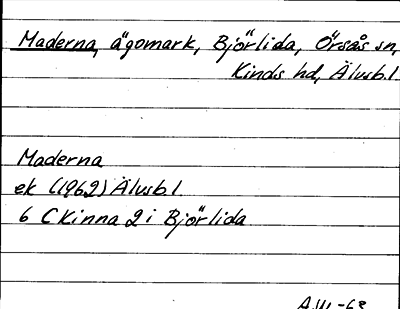 Maderna, ägomark, Björlida, Örsås sn,
Kinds hd, Älvsb.l
Maderna
ek (1962) Älvsb l
6 C Kinna 2 i Björlida
-63